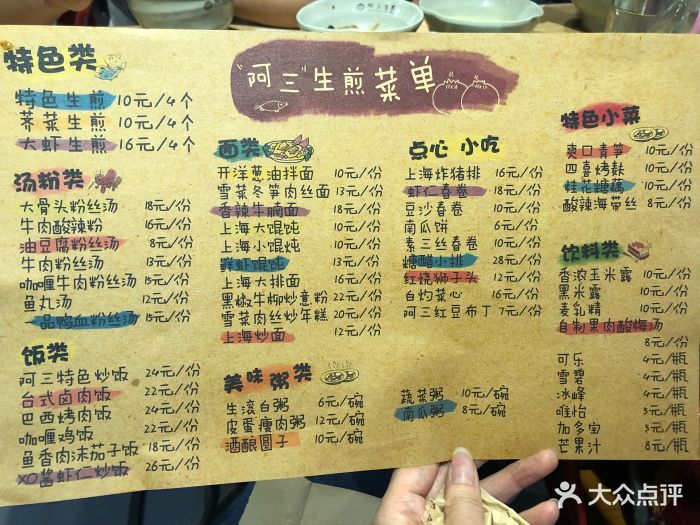 “阿三”生煎菜单
特色类
特色生煎 10元/4个
荠菜生煎 10元/4个
大虾生煎 16元/4个
汤粉类
大骨头粉丝汤 18元/份
牛肉酸辣粉 16元/份
油豆腐粉丝汤 8元/份
牛肉粉丝汤 13元/份
咖喱牛肉粉丝汤 15元/份
鱼丸汤 12元/份
一品鸭血粉丝汤 15元/份
饭类
阿三特色炒饭 24元/份
台式卤肉饭 22元/份
巴西烤肉饭 24元/份
咖喱鸡饭 22元/份
鱼香肉沫茄子饭 18元/份
XO酱虾仁炒饭 26元/份
面类
开洋葱油拌面 10元/份
雪菜冬笋肉丝面 13元/份
香辣牛腩面 18元/份
上海大馄饨 10元/份
上海小馄炖 10元/份
鲜虾馄饨 13元/份
上海大排面 18元/份
黑椒牛柳炒意粉 22元/份
雪菜肉丝炒年糕 20元/份
上海炒面 12元/份
美味粥类
生滚白粥 6元/碗
皮蛋瘦肉粥 12元/碗
酒酿圆子 10元/碗
蔬菜粥 10元/碗
南瓜粥 8元/碗
点心 小吃
上海炸猪排 16元/份
虾仁春卷 18元/份
豆沙春卷 10元/份
南瓜饼 6元/份
素三丝春卷 10元/份
糖醋小排 28元/份
红烧狮子头 12元/份
白灼菜心 16元/份
阿三红豆布丁 7元/份
特色小菜
爽口青笋 8元/份
四喜烤麸 10元/份
桂花糖藕 10元/份
酸辣海带丝 8元/份
饮料类
香浓玉米露 10元/份
黑米露 10元/份
麦乳精 10元/份
自制果肉酸梅汤
8元/份
可乐 4元/瓶
雪碧 4元/瓶
冰峰 4元/瓶
唯怡 5元/瓶
加多宝 5元/瓶
芒果汁 8元/瓶
大众点评